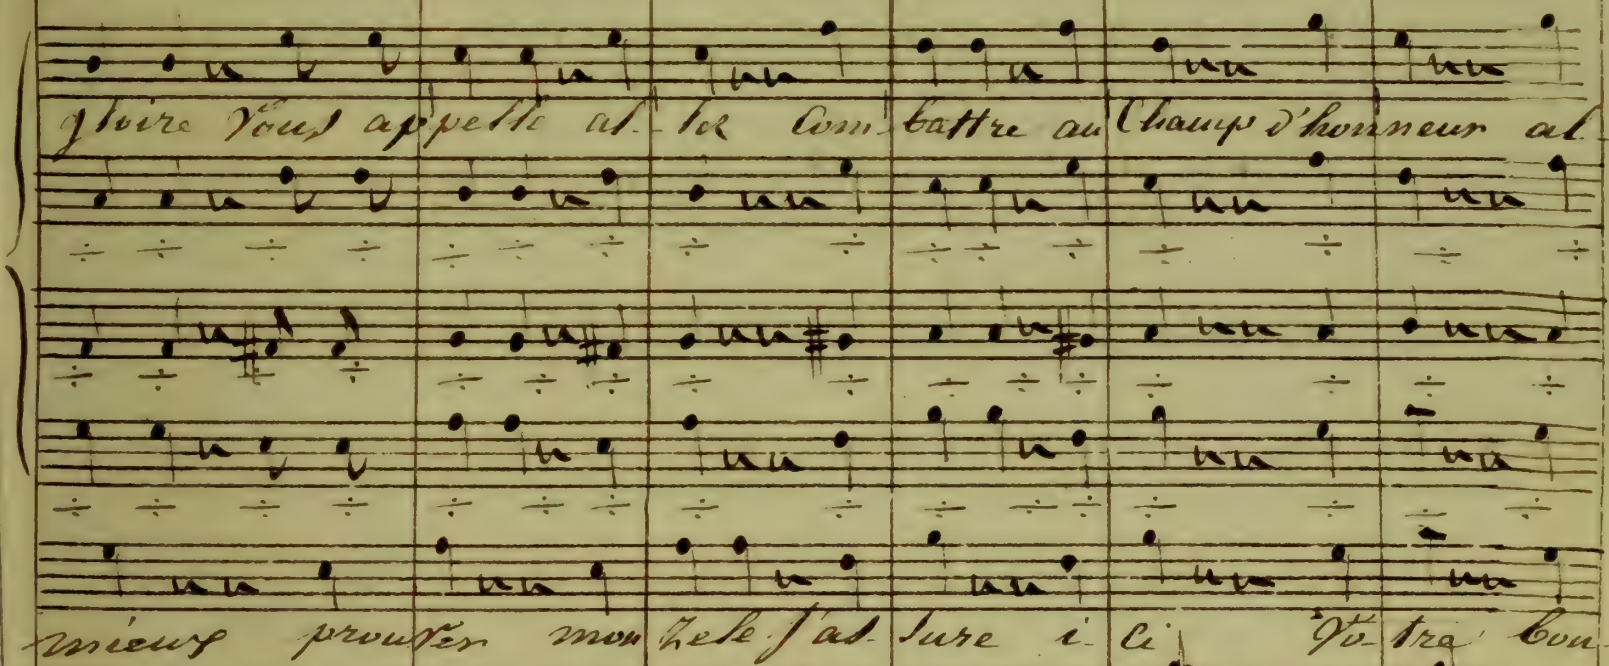 gloire Vous appelle al-lez Com-battre au Champ d'honneur al-
mieux prouver mon Zele j'as-sure i-ci Vo-tre bon-